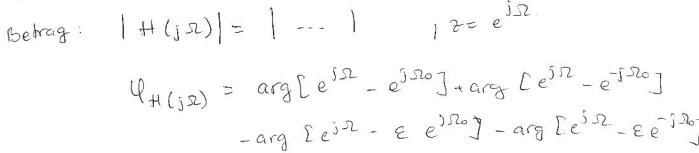 Betrag: |H(jΩ)| = | ... | , z = e^{jΩ}
φ_{H(jΩ)} = arg[e^{jΩ} - e^{jΩ0}] + arg[e^{jΩ} - e^{-jΩ0}]
- arg[e^{jΩ} - ε e^{jΩ0}] - arg[e^{jΩ} - ε e^{-jΩ0}